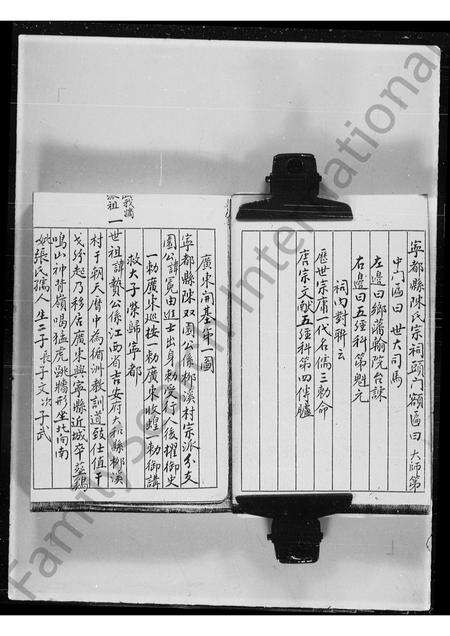 寧都縣陳氏宗祠頭门額匾曰 大師第
中门匾曰 世大司馬
左邊曰鄉藩翰院台諫
右邊曰五經科第魁元
祠内對聯云
歷世宗庸一代名儒三勅命
唐宗文献五經科第四傳臚
廣東開基第一圖
寧都縣陳双園公係柳溪村宗派分支
園公諱寛由進士出身勅受行人後擢御史
一勅廣東巡按一勅廣東收蝗一勅御講
救大子榮歸寧都
一世祖諱贊公係江西省吉安府大和縣柳溪
村于朝天曆中為循洲教訓道致仕值干
戈紛起乃移居廣東興寧縣近城卒葬鷄
鳴山神背嶺喝猛虎跳牆形坐北向南
妣張氏孺人 生二子 長子文 次子武
派祖
FamilySearch International